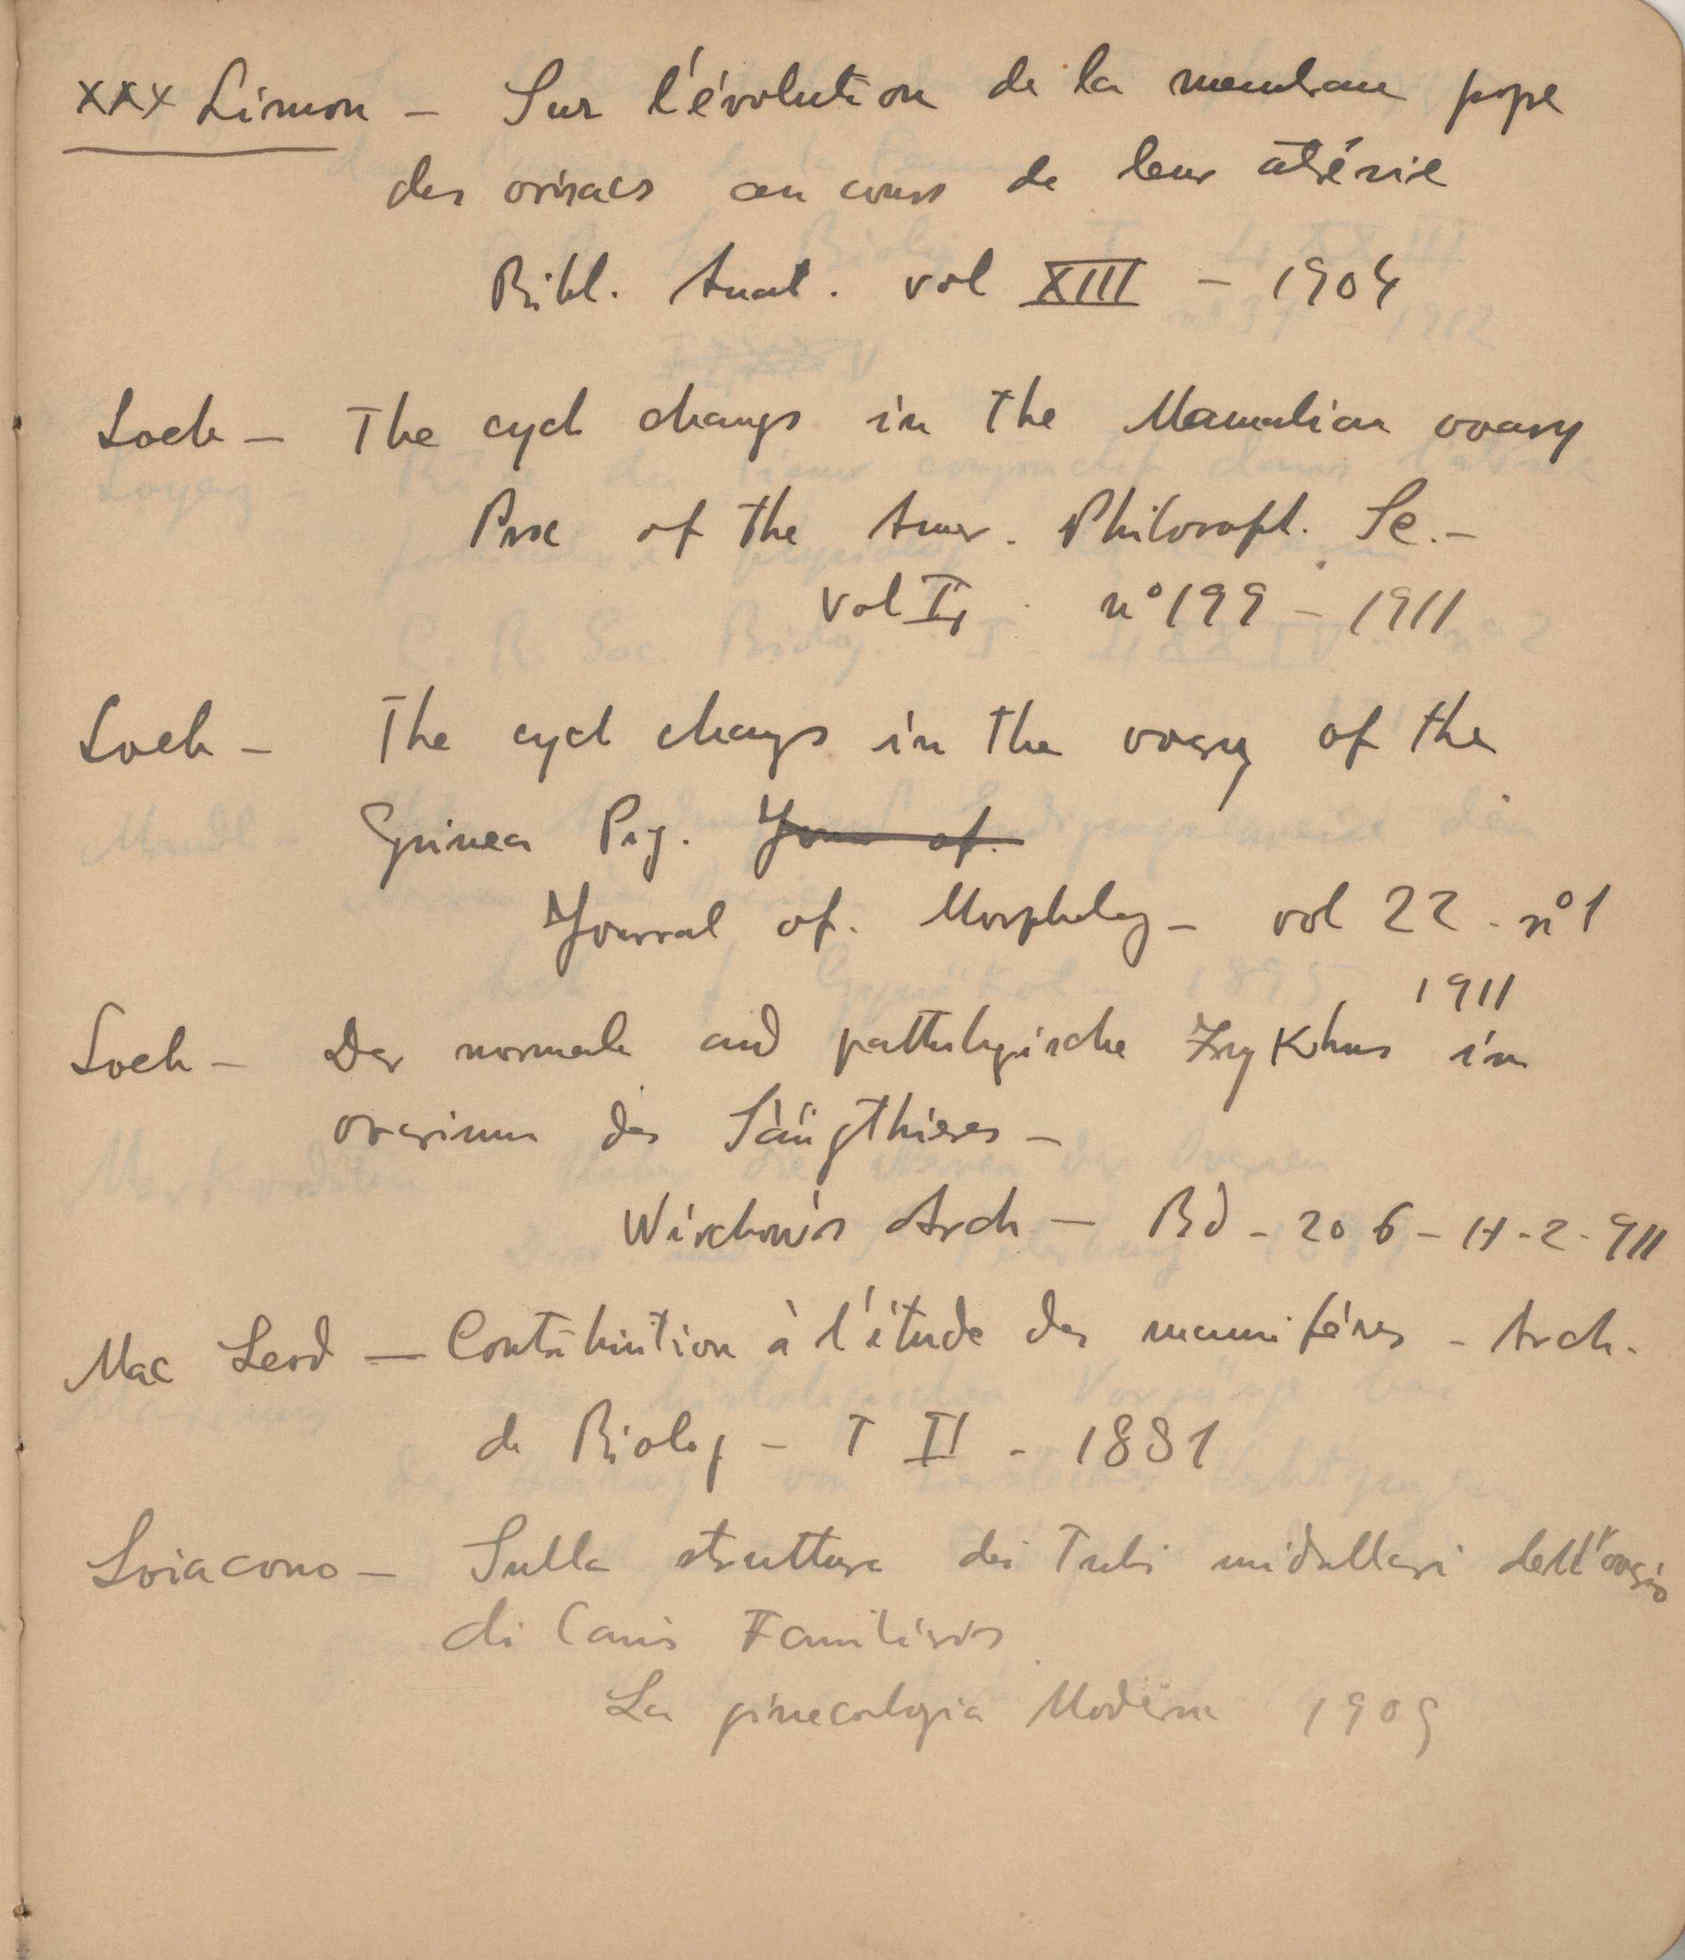 xxx Limon – Sur l'évolution de la membrane pope
des ovisacs au cours de leur atrésie
Bibl. Anat. vol XIII – 1904
Loeb – The cycl changs in the Mammalian ovary
Proc of the Amer. Philosoph. Sc. –
vol I, n° 199 – 1911
Loeb – The cycl changs in the ovary of the
Guinea Pig. Journ of.
Journal of. Morpholog – vol 22 . n° 1
1911
Loeb – Der normale und pathologische Zyklus im
ovarium des Säugthieres –
Wirchow's Arch – Bd – 206 – H . 2 . 911
Mac Leod – Contribution à l'étude des mammifères – Arch.
de Biolog – T II – 1881
Loiacono – Sulla struttura dei Tubi midullari dell'ovario
di Canis Familiaris
La ginecologia Moderna 1909